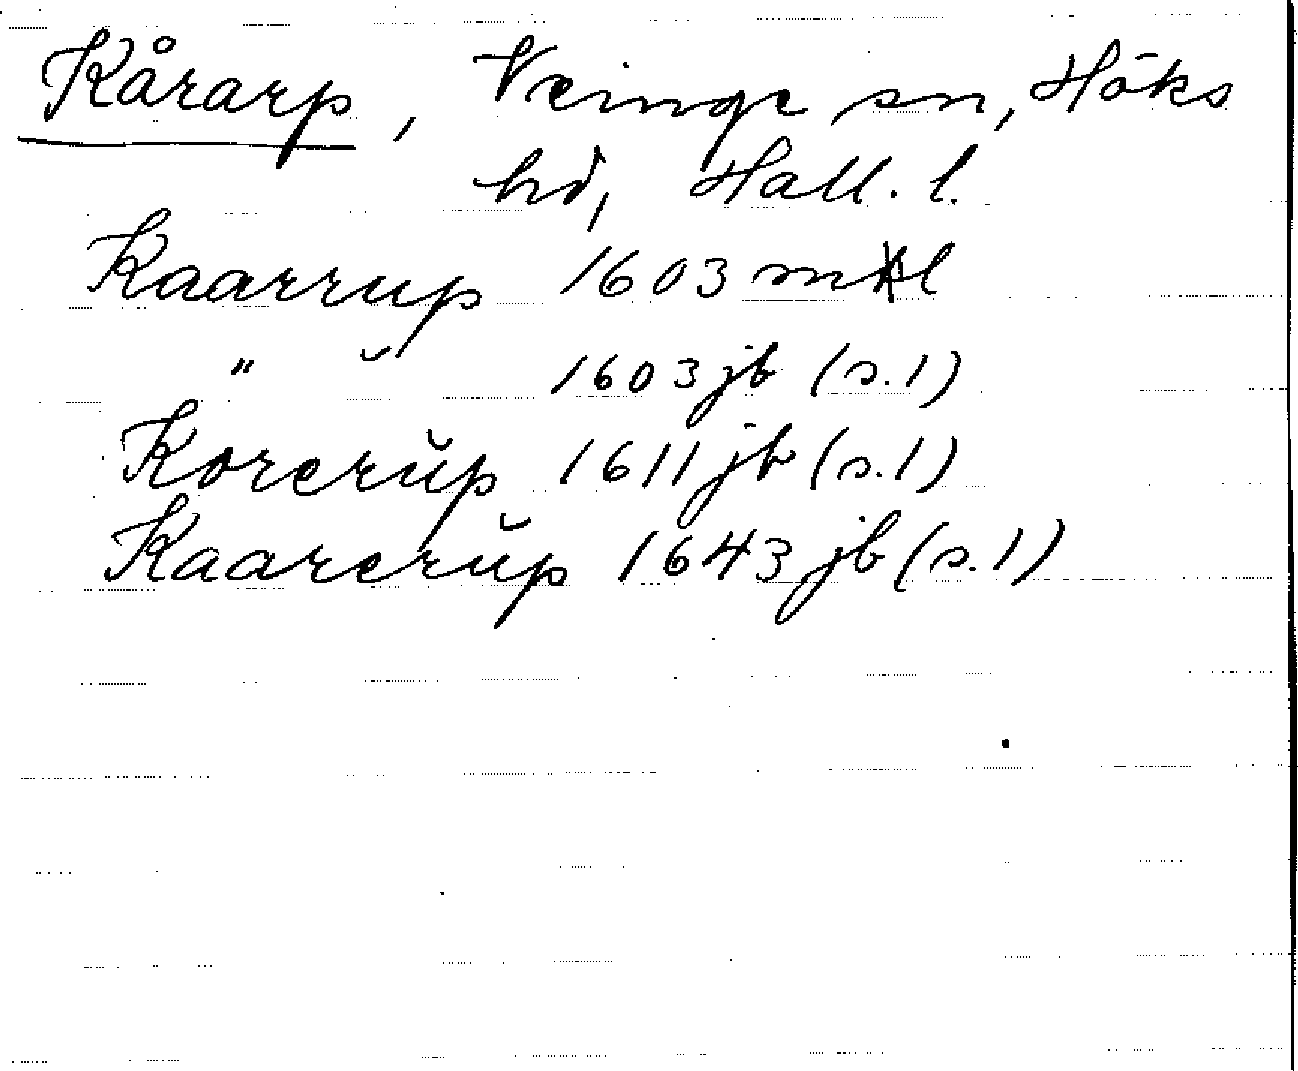 Kårarp, Veinge sn, Höks
hd, Hall. l.
Kaarrup 1603 mkl
" ˘ 1603 jb (s. 1)
Korerŭp 1611 jb (s. 1)
Kaarerŭp 1643 jb (s. 1)